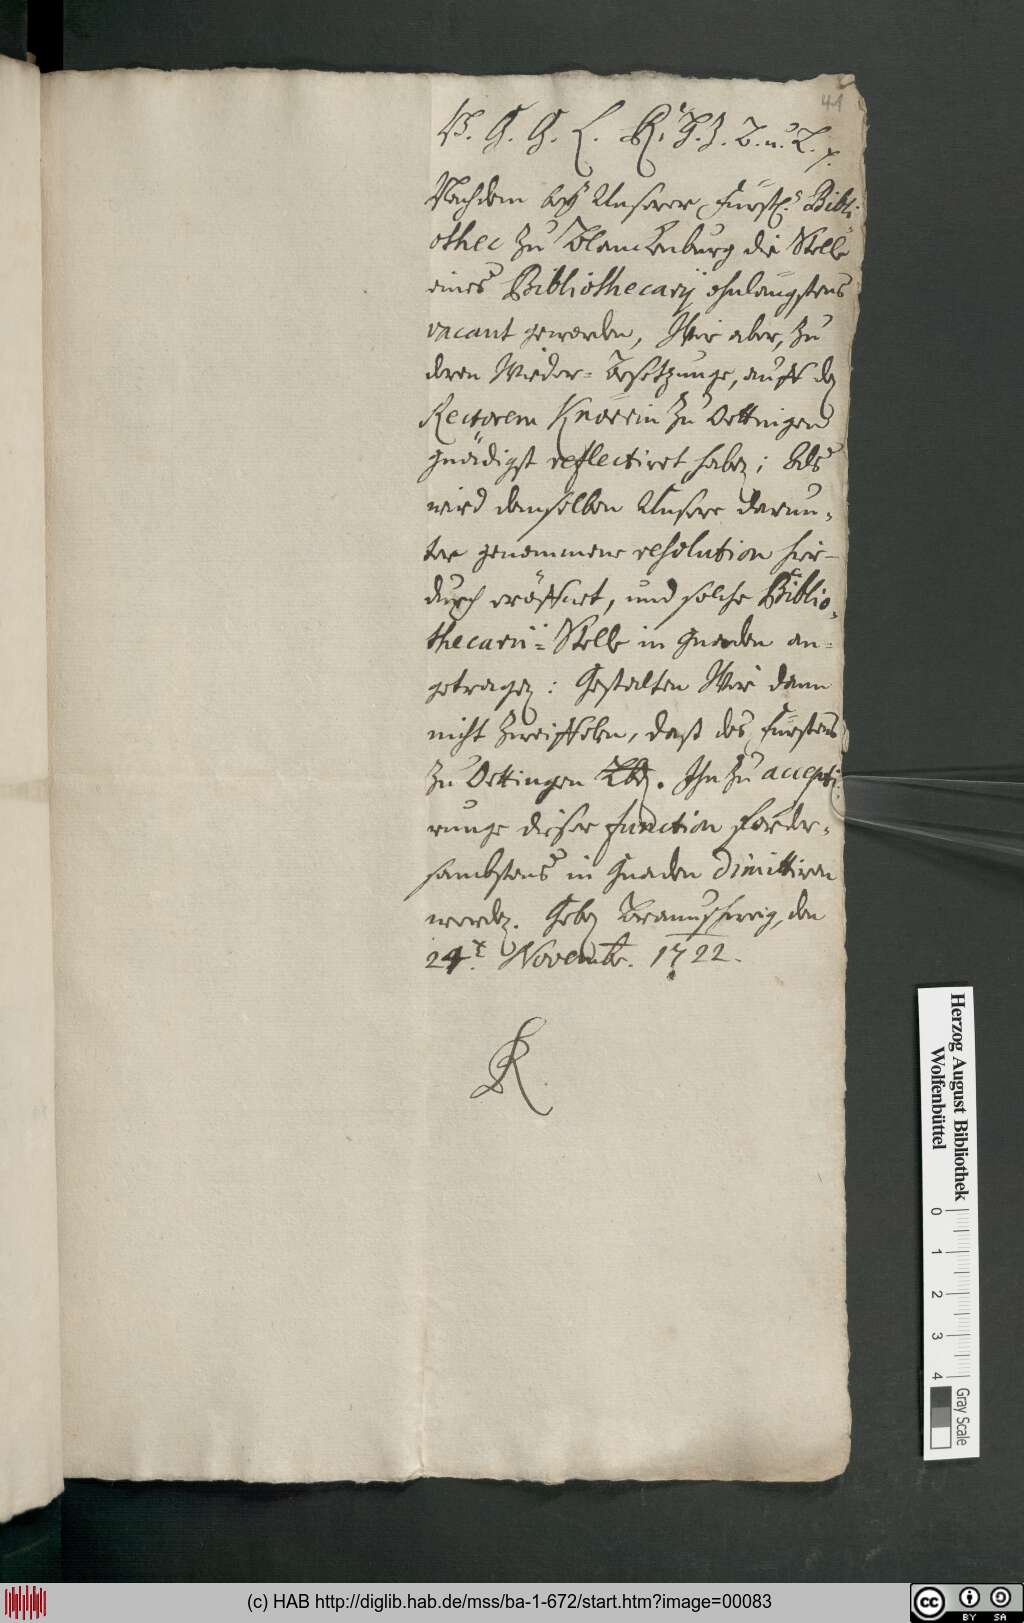 41
V. G. G. L. R. H. Z. B. u. L. p.
Nachdem bey Unserer Fürstl. Bibli-
othec zu Blanckenburg die Stelle
eines Bibliothecarij ohnlängstens
vacant geworden, Wir aber, zu
deren Wieder-Besetzunge, auff den
Rectorem Knorrin zu Oettingen
gnädigst reflectiret haben; Als
wird demselben Unsere darun-
ter genommene resolution hier-
durch eröffnet, und solche Biblio-
thecarii-Stelle in Gnaden an-
getragen: Gestalten Wir dann
nicht zweiffelen, daß des Fürstens
zu Oettingen Lbd. Ihn zu accepti-
runge dieser function forder-
sambstens in Gnaden dimittiren
werden. Geben Braunschweig, den
24. Novembr. 1722.
Herzog August Bibliothek
Wolfenbüttel
0 1 2 3 4
Gray Scale
(c) HAB http://diglib.hab.de/mss/ba-1-672/start.htm?image=00083
cc BY SA